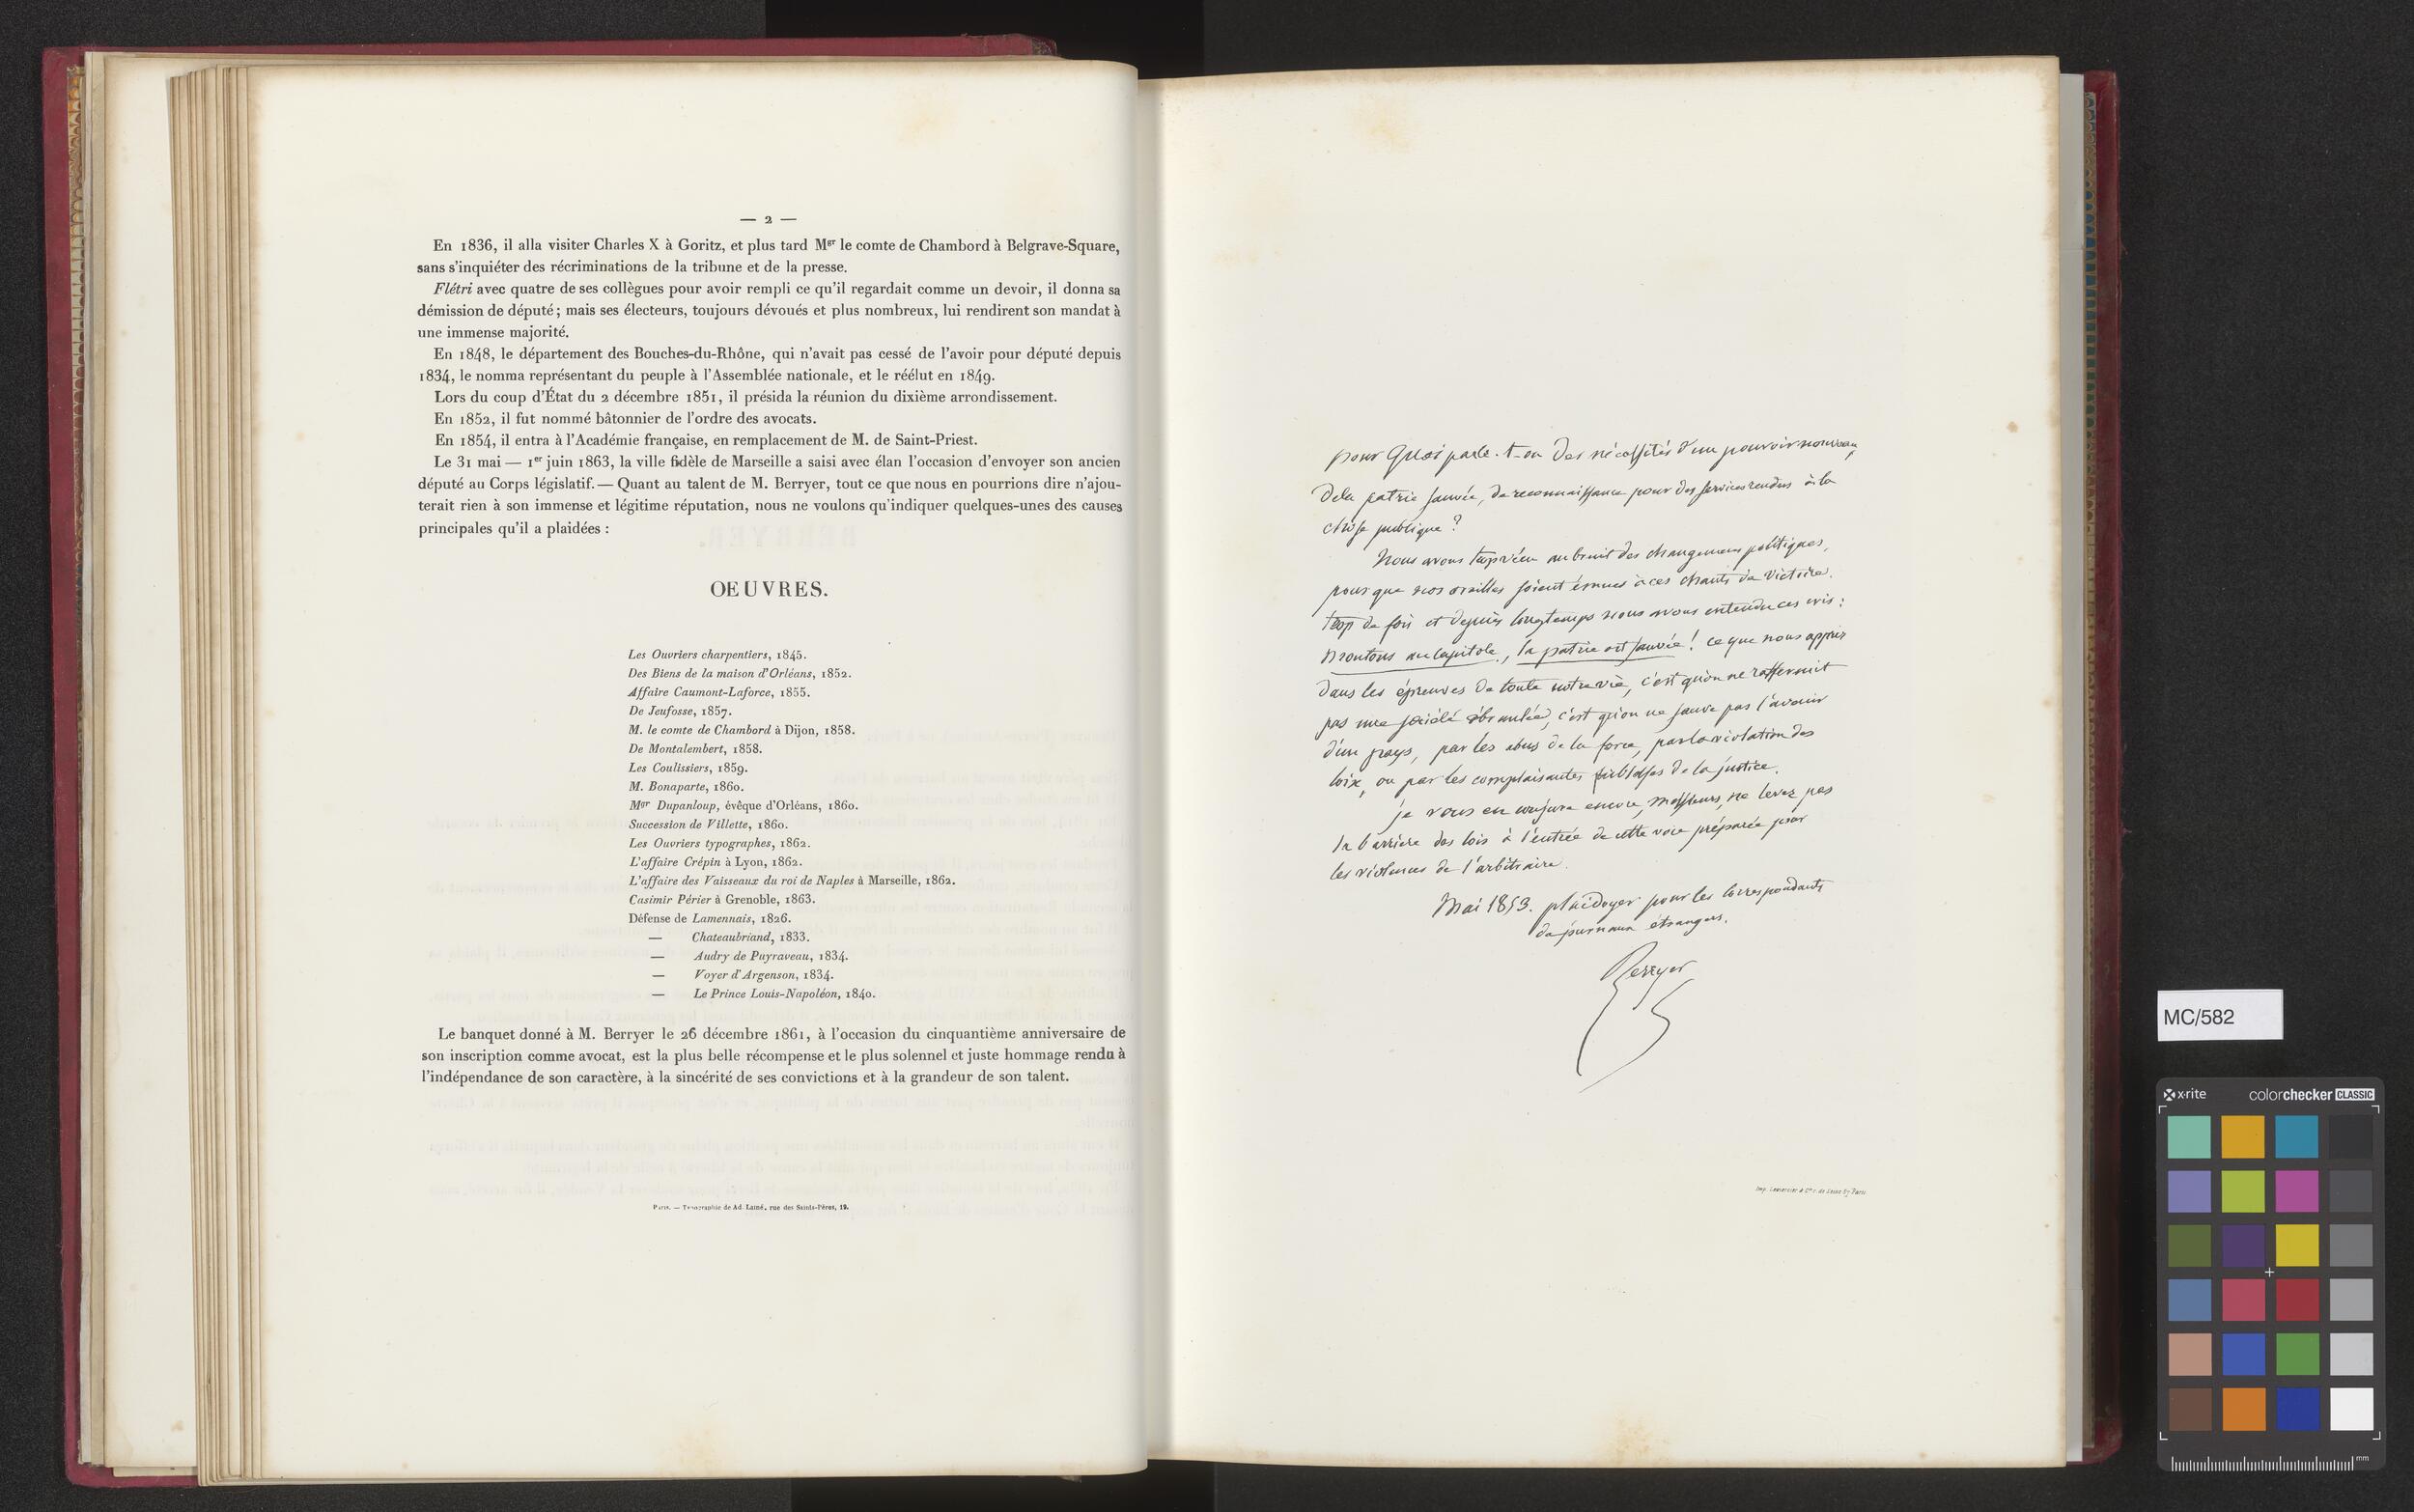 — 2 —
En 1836, il alla visiter Charles X à Goritz, et plus tard Mgr le comte de Chambord à Belgrave-Square,
sans s'inquiéter des récriminations de la tribune et de la presse.
Flétri avec quatre de ses collègues pour avoir rempli ce qu'il regardait comme un devoir, il donna sa
démission de député; mais ses électeurs, toujours dévoués et plus nombreux, lui rendirent son mandat à
une immense majorité.
En 1848, le département des Bouches-du-Rhône, qui n'avait pas cessé de l'avoir pour député depuis
1834, le nomma représentant du peuple à l'Assemblée nationale, et le réélut en 1849.
Lors du coup d'État du 2 décembre 1851, il présida la réunion du dixième arrondissement.
En 1852, il fut nommé bâtonnier de l'ordre des avocats.
En 1854, il entra à l'Académie française, en remplacement de M. de Saint-Priest.
Le 31 mai — 1er juin 1863, la ville fidèle de Marseille a saisi avec élan l'occasion d'envoyer son ancien
député au Corps législatif. — Quant au talent de M. Berryer, tout ce que nous en pourrions dire n'ajou-
terait rien à son immense et légitime réputation, nous ne voulons qu'indiquer quelques-unes des causes
principales qu'il a plaidées :
OEUVRES.
Les Ouvriers charpentiers, 1845.
Des Biens de la maison d'Orléans, 1852.
Affaire Caumont-Laforce, 1855.
De Jeufosse, 1857.
M. le comte de Chambord à Dijon, 1858.
De Montalembert, 1858.
Les Coulissiers, 1859.
M. Bonaparte, 1860.
Mgr Dupanloup, évêque d'Orléans, 1860.
Succession de Villette, 1860.
Les Ouvriers typographes, 1862.
L'affaire Crépin à Lyon, 1862.
L'affaire des Vaisseaux du roi de Naples à Marseille, 1862.
Casimir Périer à Grenoble, 1863.
Défense de Lamennais, 1826.
— Chateaubriand, 1833.
— Audry de Puyraveau, 1834.
— Voyer d'Argenson, 1834.
— Le Prince Louis-Napoléon, 1840.
Le banquet donné à M. Berryer le 26 décembre 1861, à l'occasion du cinquantième anniversaire de
son inscription comme avocat, est la plus belle récompense et le plus solennel et juste hommage rendu à
l'indépendance de son caractère, à la sincérité de ses convictions et à la grandeur de son talent.
Paris. — Typographie de Ad. Lainé, rue des Saints-Pères, 19.
pour Quoi parle-t-on des nécessités d'un pouvoir nouveau,
de la patrie sauvée, de reconnaissance pour des services rendus à la
chose publique ?
Nous avons trop vécu au bruit des changemens politiques,
pour que nos oreilles soient émues à ces chants de victoire.
trop de fois et depuis longtemps nous avons entendu ces cris :
montons au Capitole, la patrie est sauvée ! ce que nous apprit
dans les épreuves de toute notre vie, c'est qu'on ne raffermit
pas une société ébranlée, c'est qu'on ne sauve pas l'avenir
d'un pays, par les abus de la force, par la violation des
loix, ou par les complaisantes faiblesses de la justice.
je vous en conjure encore, messieurs, ne levez pas
la barrière des lois à l'entrée de cette voie préparée pour
les violences de l'arbitraire.
Mai 1853. plaidoyer pour les correspondants
de journaux étrangers.
Berryer
Imp. Lemercier & Cie r. de Seine 57 Paris
MC/582
x-rite colorchecker CLASSIC
mm